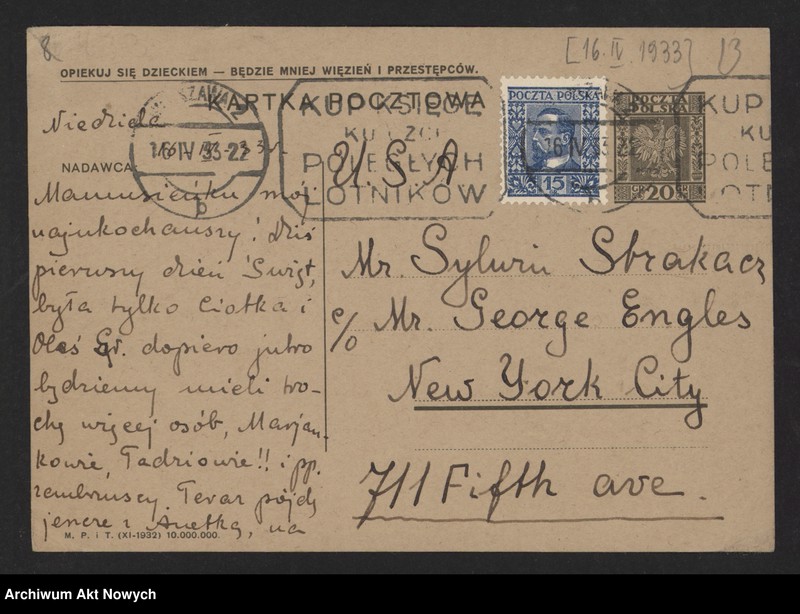 8
[16.IV.1933]
13
OPIEKUJ SIĘ DZIECKIEM — BĘDZIE MNIEJ WIĘZIEŃ I PRZESTĘPCÓW.
KARTKA POCZTOWA
WARSZAWA 2
16 IV 33-22
b
KUP KSIĘGĘ
KU CZCI
POLEGŁYCH
LOTNIKÓW
POCZTA POLSKA
15
POCZTA POLSKA
GR 20 GR
KUP
KU
POLE
LOTN
Niedziela
NADAWCA
Mamusieńku mój
najukochańszy! Dziś
pierwszy dzień Świąt,
była tylko Ciotka i
Oleś Gr. dopiero jutro
będziemy mieli tro-
chę więcej osób, Marjan-
kowie, Tadziowie!! i pp.
Zembrzuscy. Teraz pójdę
jeszcze z Anetką, na
U.S.A
Mr. Sylwin Strakacz
c/o Mr. George Engles
New York City
711 Fifth ave.
M. P. i T. (XI-1932) 10.000.000.
Archiwum Akt Nowych